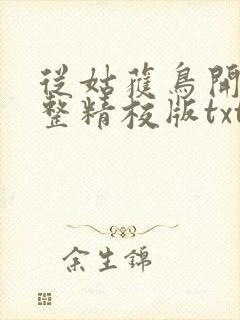 從姑蒦鳥開
整精校版txt
余生錦